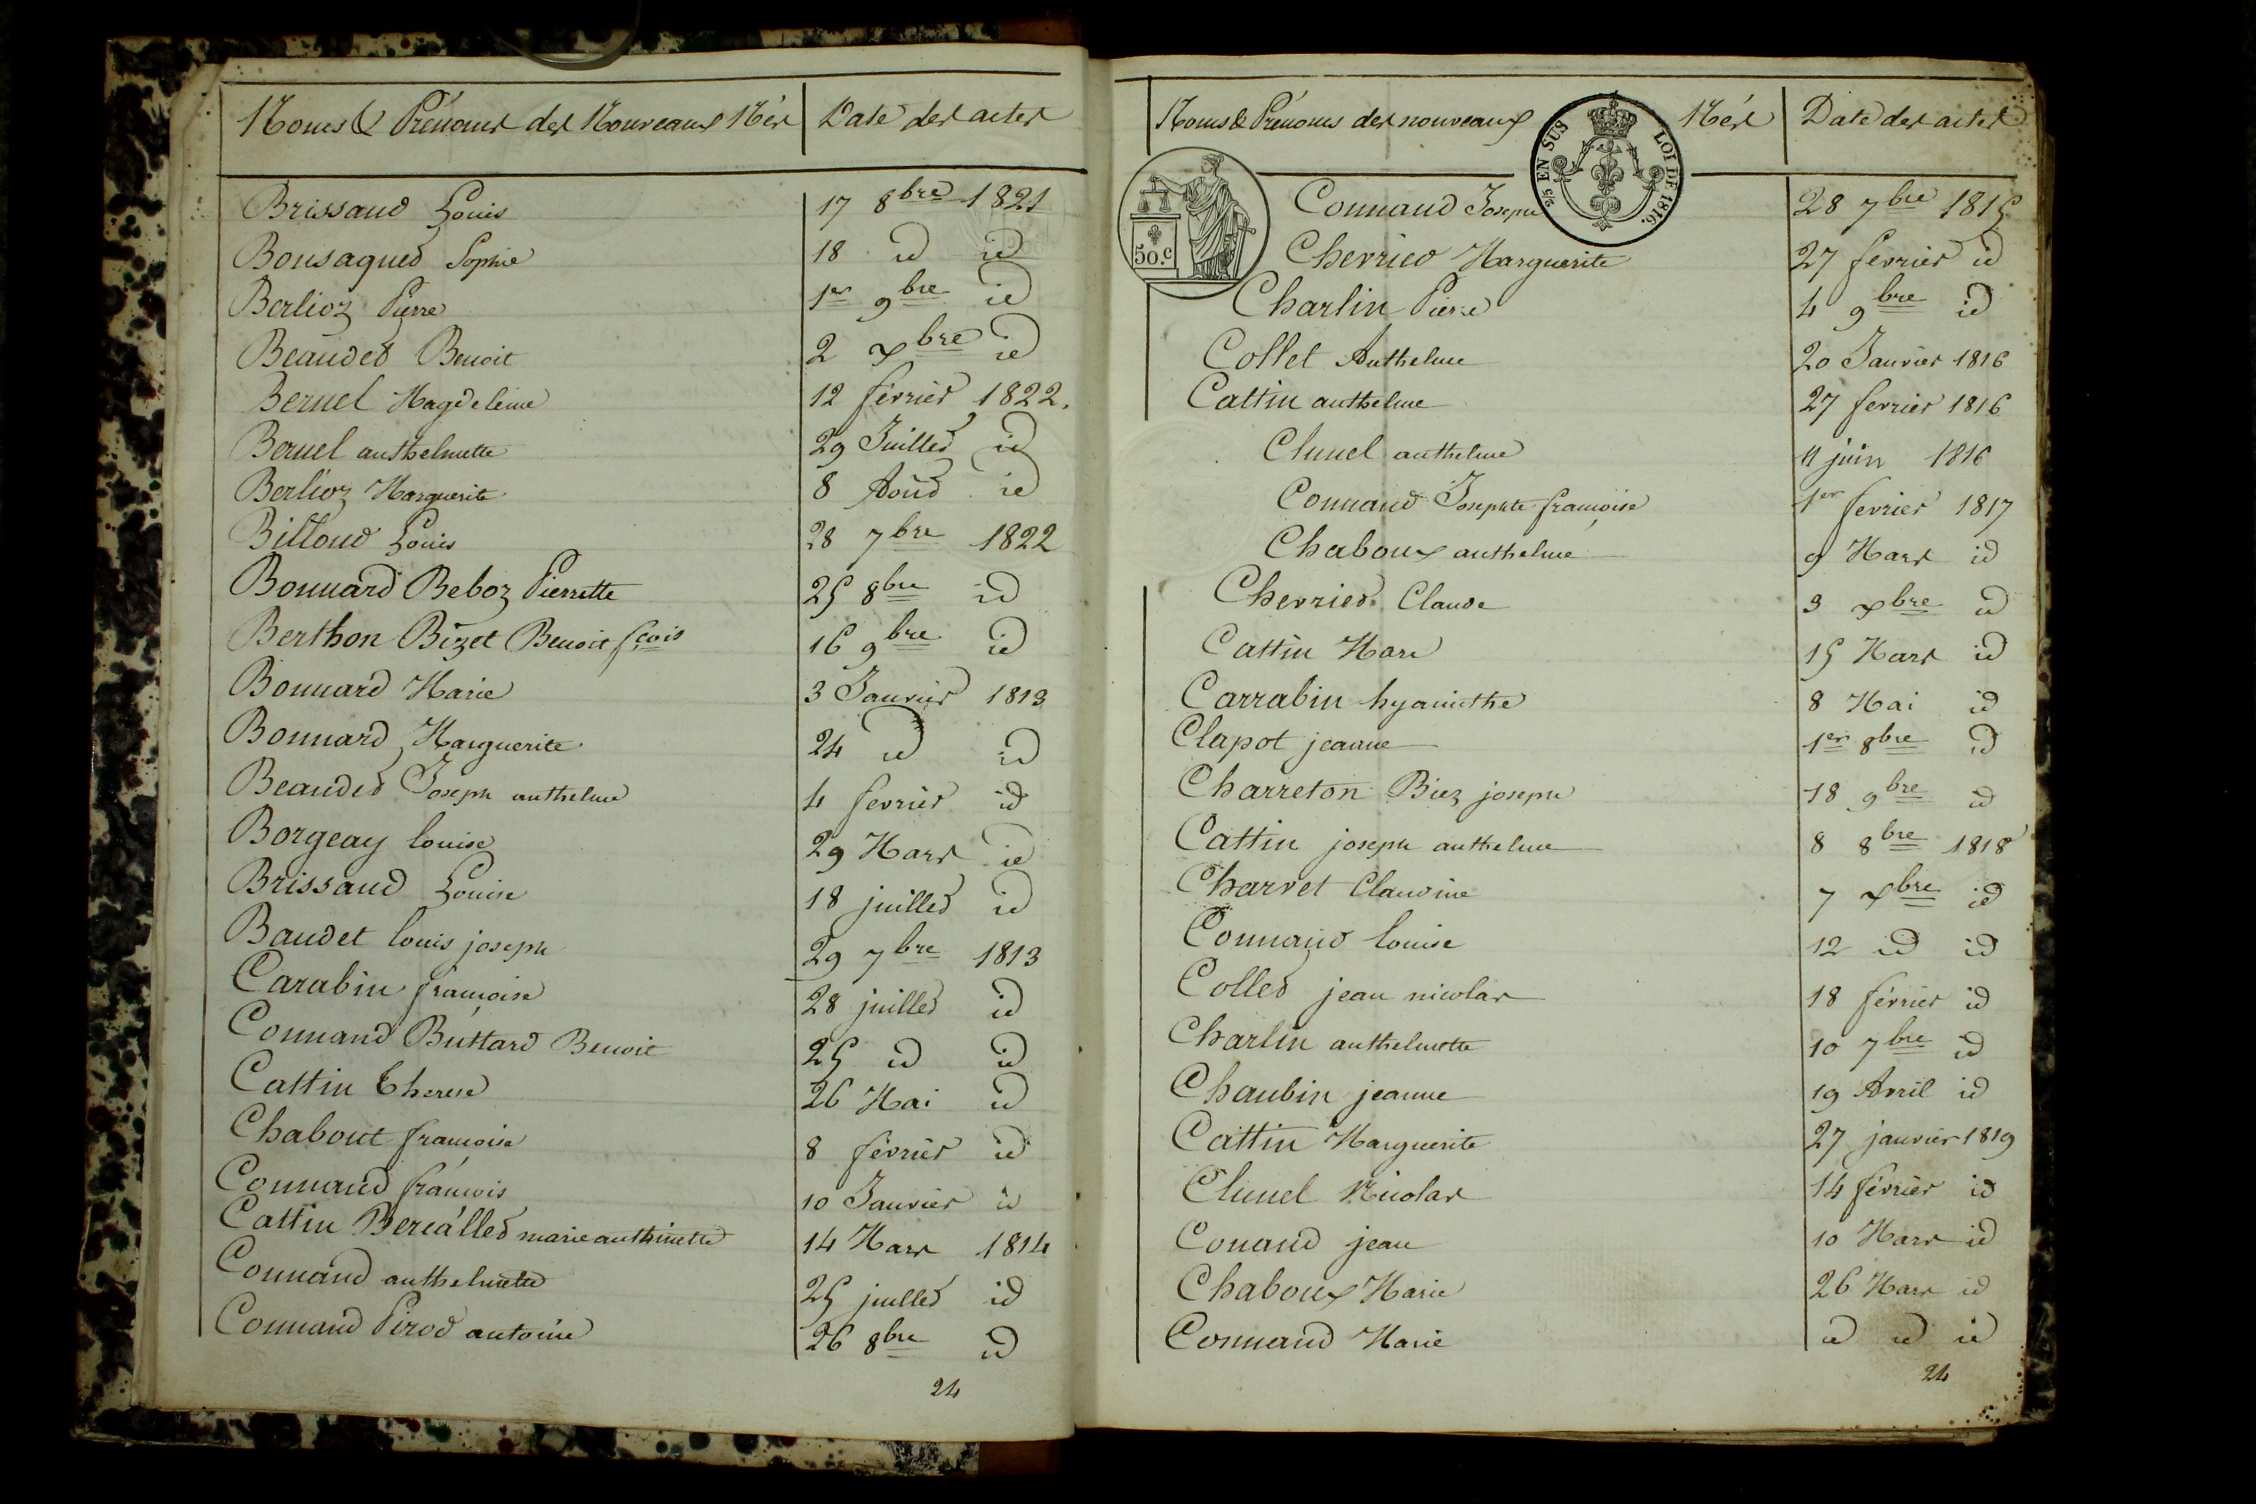 Noms & Prénoms des Nouveaux Nés Date des actes
Brissaud Louis 17 8bre 1821
Bousaqued Sophie 18 id id
Berlioz Pierre 1er 9bre id
Beaudet Benoit 2 Xbre id
Beruel Magdeleine 12 février 1822.
Beruel anthelmette 29 Juillet id
Berlioz Marguerite 8 Août id
Billoud Louis 28 7bre 1822
Bonnard Beboz Pierrette 25 8bre id
Berthon Bizet Benoit fçois 16 9bre id
Bonnard Marie 3 Janvier 1813
Bonnard Marguerite 24 id id
Beaudet Joseph anthelme 4 fevrier id
Borgeay louise 29 Mars id
Brissaud Louise 18 juillet id
Baudet louis joseph 29 7bre 1813
Carabin françoise 28 juillet id
Connand Buttard Benoit 25 id id
Cattin Therese 26 Mai id
Chabout françoise 8 février id
Connand françois 10 Janvier id
Cattin Bercallet marie anthinette 14 Mars 1814
Connand anthelmette 25 juillet id
Connand Pirod antoine 26 8bre id
24
Noms & Prénoms des nouveaux Nés Date des actes
25 EN SUS LOI DE 1816.
50.c
Connand Joseph 28 7bre 1815
Chevrier Marguerite 27 février id
Charlin Pierre 4 9bre id
Collet Anthelme 20 Janvier 1816
Cattin anthelme 27 fevrier 1816
Clunel anthelme 11 juin 1816
Connand Josephte françoise 1er fevrier 1817
Chaboux anthelme 9 Mars id
Chevrier Claude 3 Xbre id
Cattin Marc 15 Mars id
Carrabin hyacinthe 8 Mai id
Clapot jeanne 1er 8bre id
Charreton Biez joseph 18 9bre id
Cattin joseph anthelme 8 8bre 1818
Charvet Claudine 7 Xbre id
Connand louise 12 id id
Collet jean nicolas 18 février id
Charlin anthelmette 10 7bre id
Chaubin jeanne 19 Avril id
Cattin Marguerite 27 janvier 1819
Clunel Nicolas 14 février id
Conand jean 10 Mars id
Chaboux Marie 26 Mars id
Connand Marie id id id
24